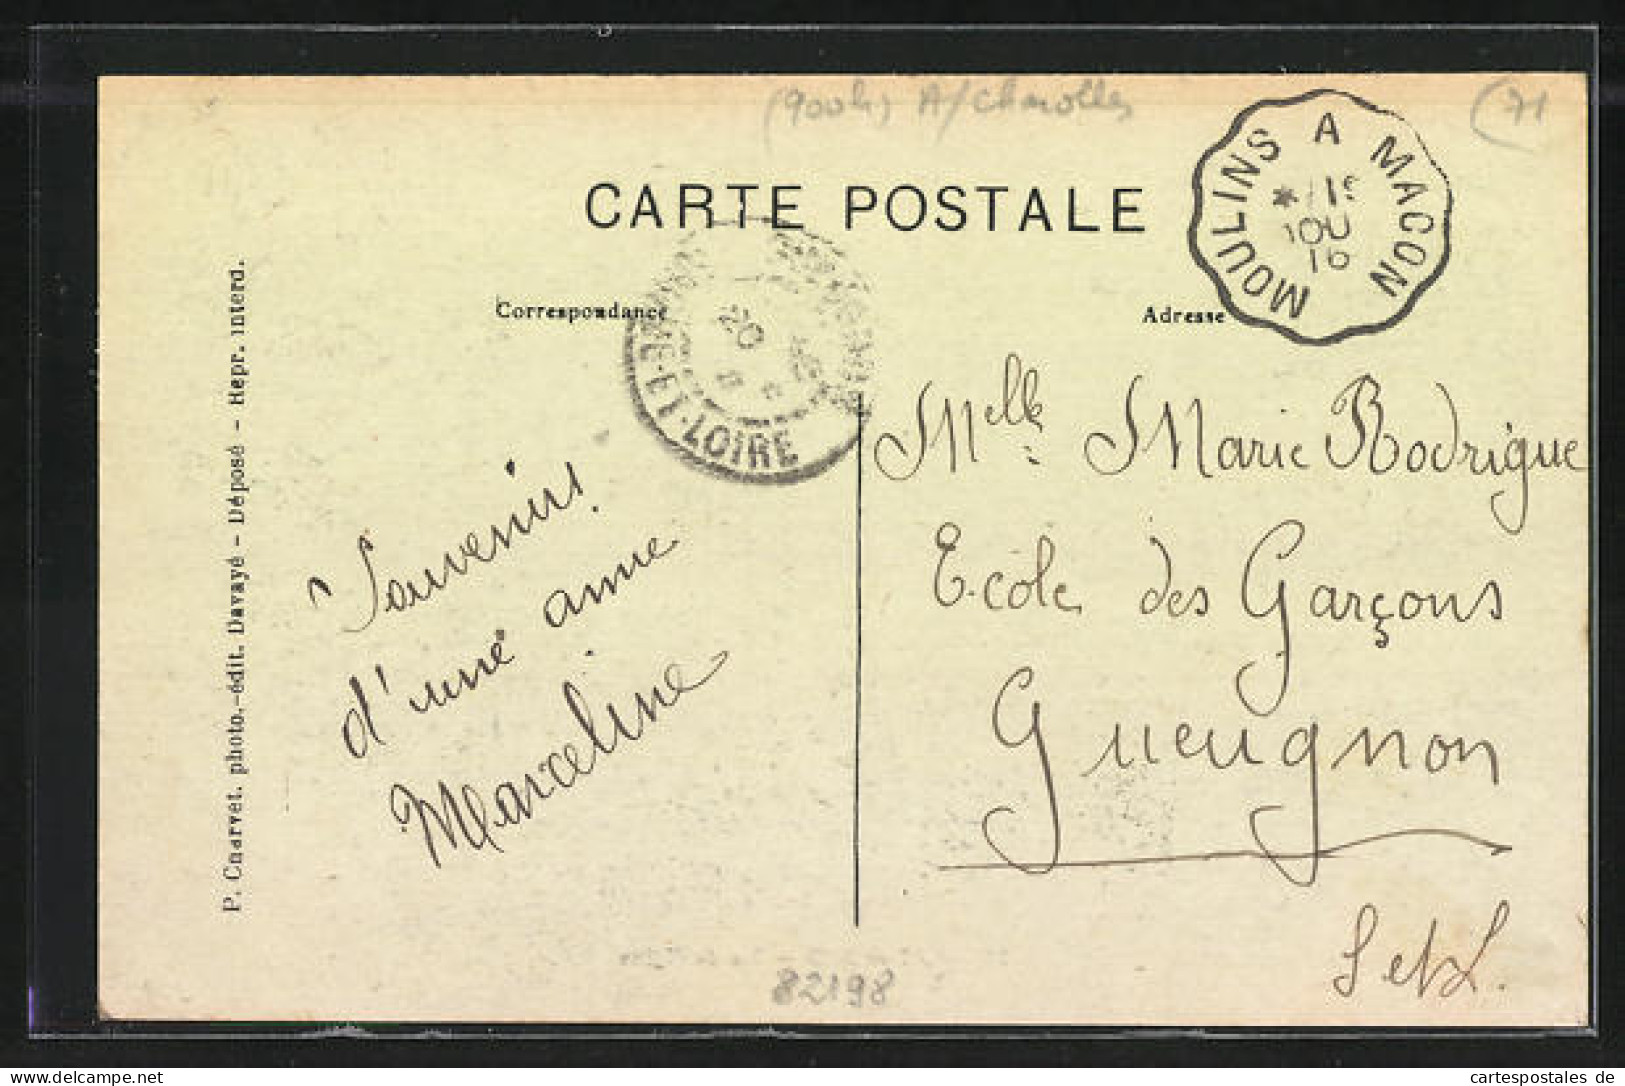 (900h) A/Charolles
(71
CARTE POSTALE
MOULINS A MACON
16
Correspondance
Adresse
20
ET-LOIRE
Melle Marie Rodrigue
Ecole des Garçons
Gueugnon
S et L.
Souvenirs
d'une amie
Marceline
P. Charvet. photo.-édit. Davayé - Déposé - Repr. interd.
82198
delcampe.net
cartespostales de